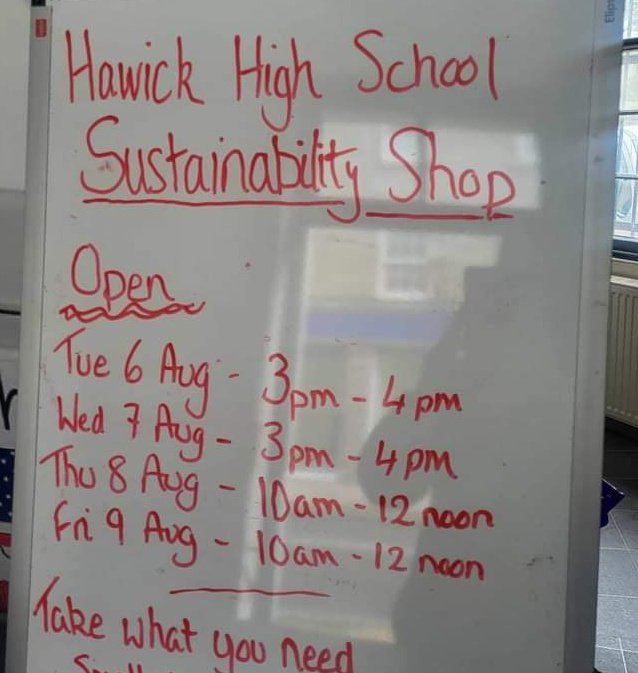 Hawick High School
Sustainability Shop
Open
Tue 6 Aug - 3pm - 4pm
Wed 7 Aug - 3pm - 4pm
Thu 8 Aug - 10am - 12 noon
Fri 9 Aug - 10am - 12 noon
Take what you need